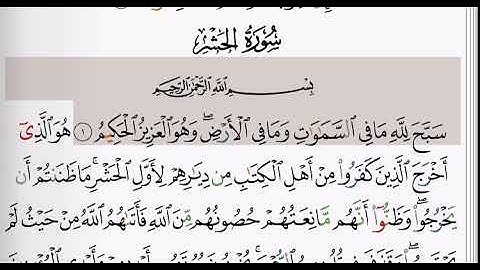 سُورَةُ الحَشْرِ
بِسْمِ اللَّهِ الرَّحْمَٰنِ الرَّحِيمِ
سَبَّحَ لِلَّهِ مَا فِي السَّمَٰوَٰتِ وَمَا فِي الْأَرْضِ ۖ وَهُوَ الْعَزِيزُ الْحَكِيمُ ١ هُوَ الَّذِيٓ
أَخْرَجَ الَّذِينَ كَفَرُوا۟ مِنْ أَهْلِ الْكِتَٰبِ مِن دِيَٰرِهِمْ لِأَوَّلِ الْحَشْرِ ۚ مَا ظَنَنتُمْ أَن
يَخْرُجُوا۟ ۖ وَظَنُّوٓا۟ أَنَّهُم مَّانِعَتُهُمْ حُصُونُهُم مِّنَ اللَّهِ فَأَتَىٰهُمُ اللَّهُ مِنْ حَيْثُ لَمْ